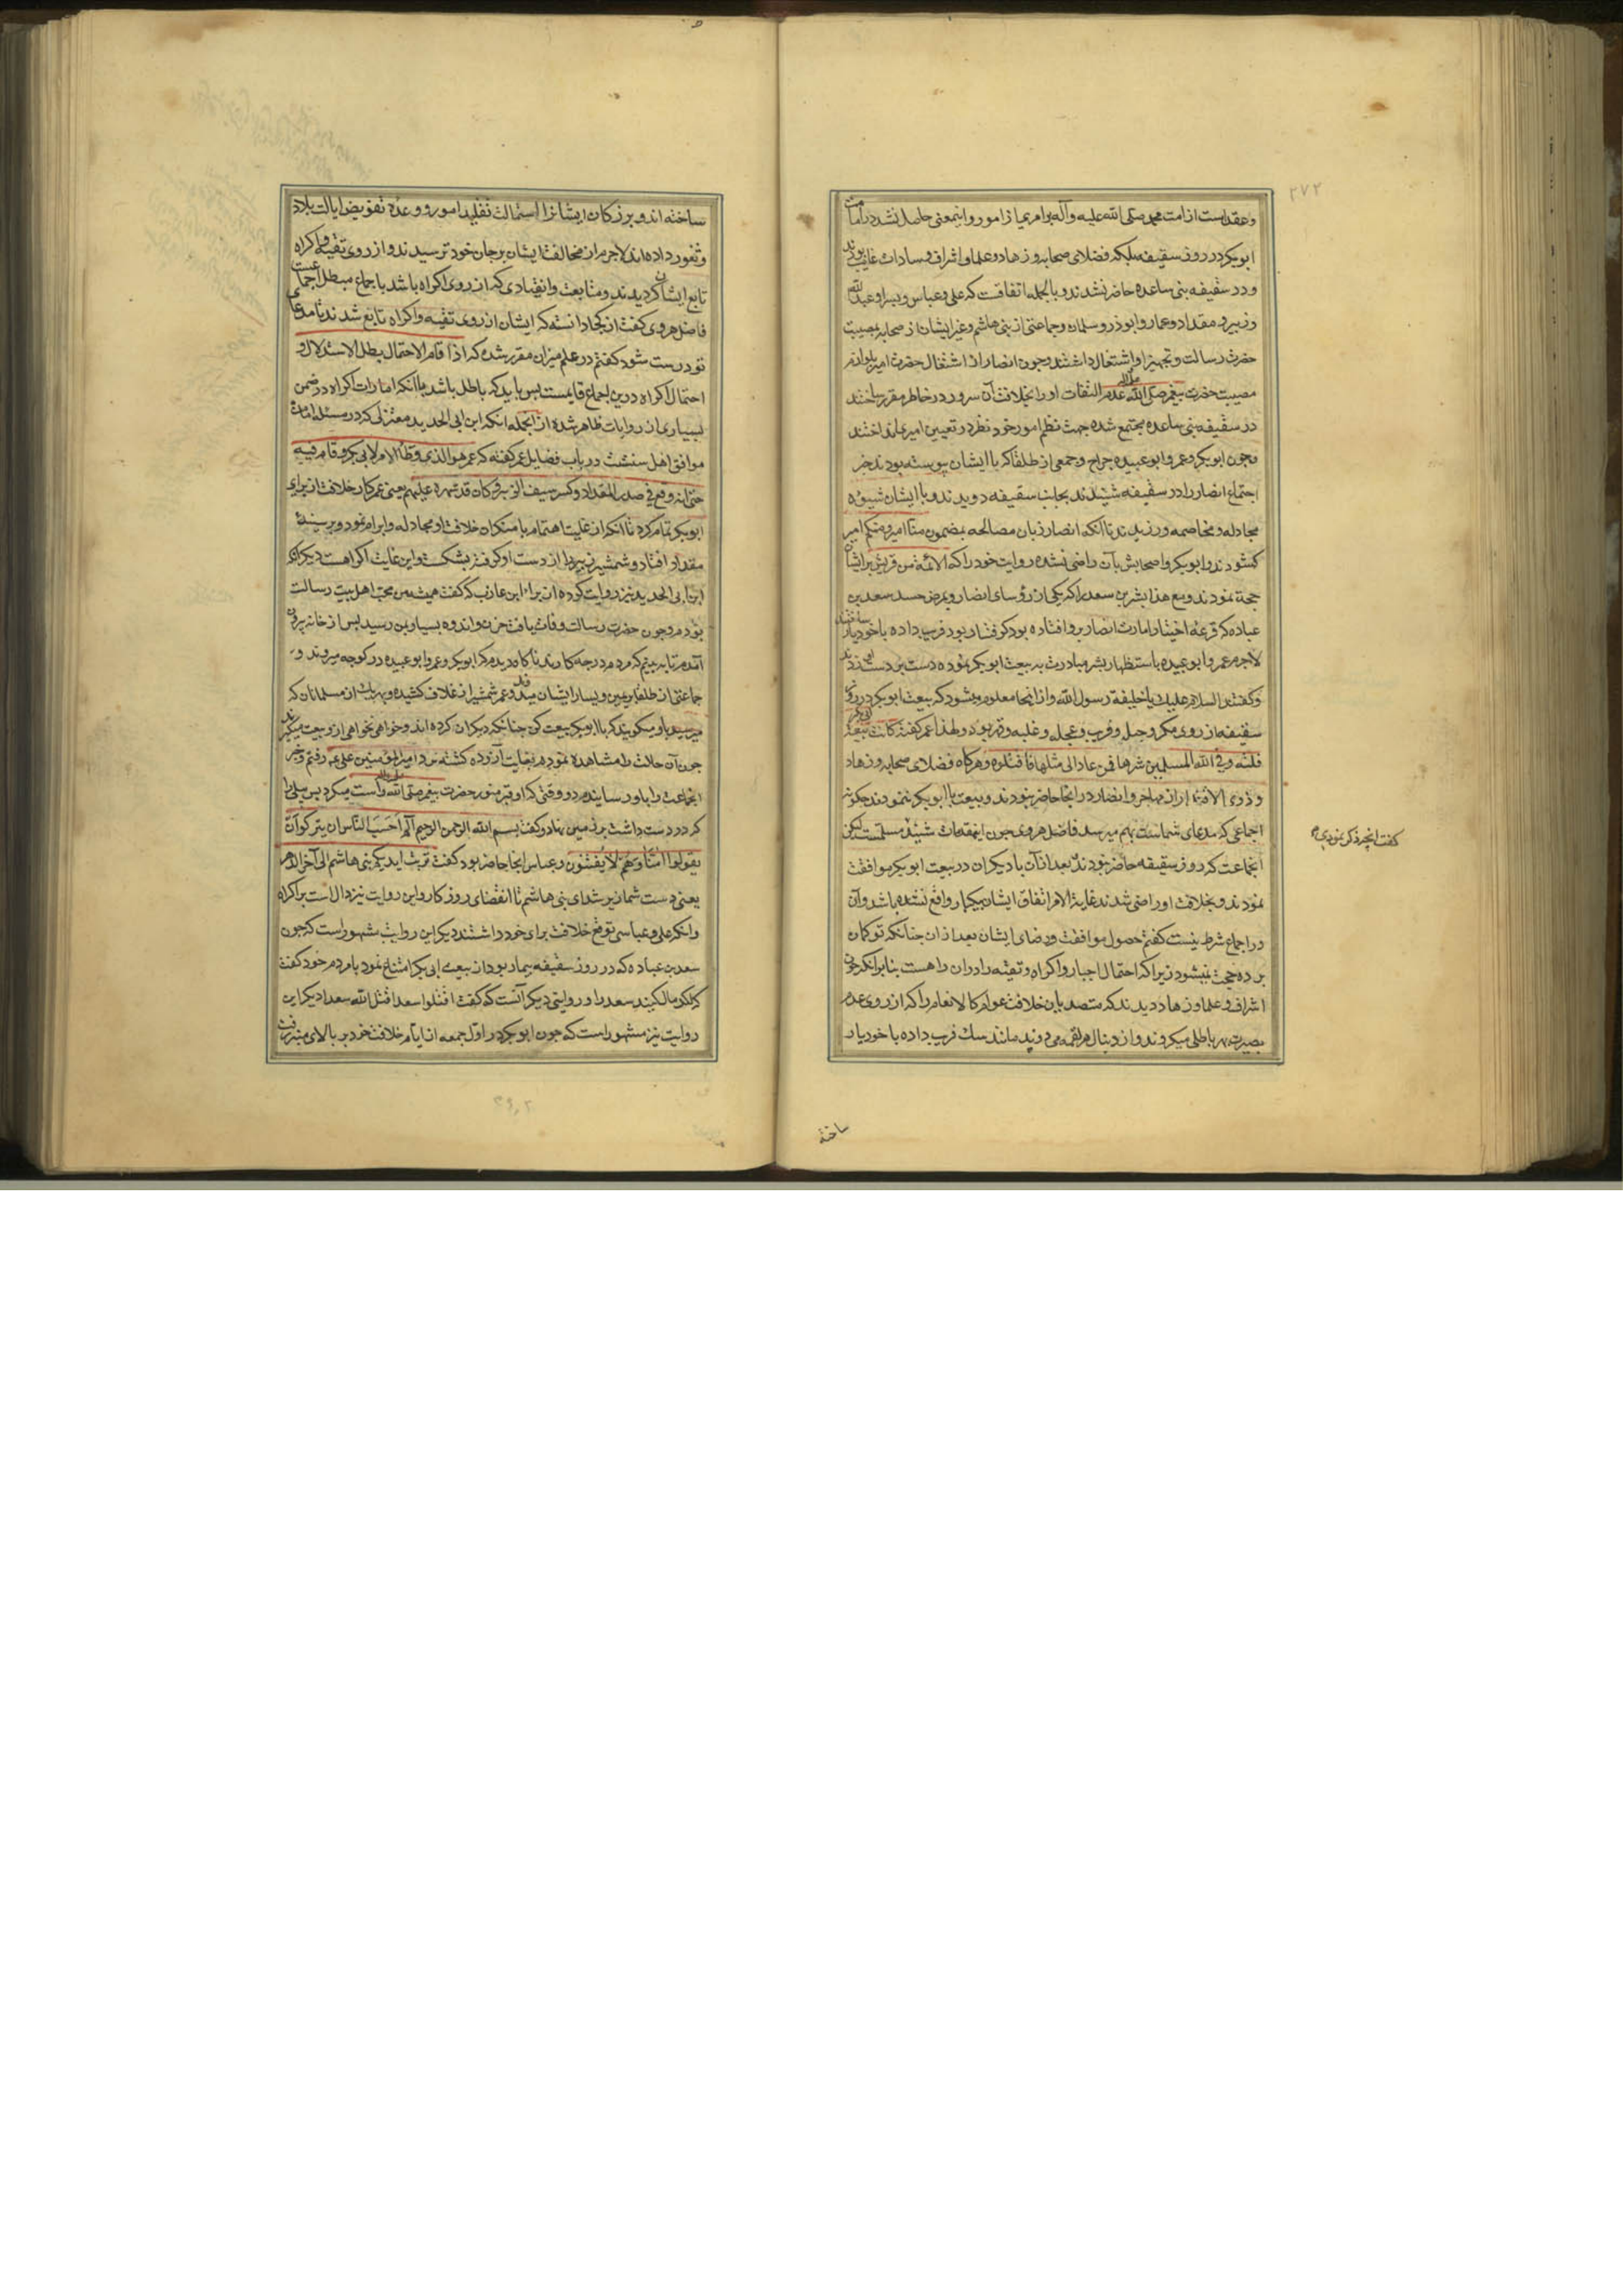 ۲۷۲
و عقدست از امت محمد صلی الله علیه وآله برامری از امور و اینمعنی حاصل نشد در امامت
ابوبکر در روز سقیفه بلکه فضلای صحابه و زهاد و علما و اشراف و سادات غایب بودند
و در سقیفه بنی ساعده حاضر نشدند و بالجمله اتفاقست که علی و عباس و پسر او عبدالله
و زبیر و مقداد و عمار و ابوذر و سلمان و جماعتی از بنی هاشم و غیر ایشان از صحابه بمصیبت
حضرت رسالت و تجهیز او اشتغال داشتند و چون انصار از اشتغال حضرت امیر بلوازم
مصیبت حضرت پیغمبر صلی الله علیه عدم التفات او را بخلافت آن سرور در خاطر مقرر ساختند
در سقیفه بنی ساعده مجتمع شده جهت نظم امور خود نظر در تعیین امیری انداختند
و چون ابوبکر و عمر و ابوعبیده جراح و جمعی از طلقا که با ایشان پیوسته بودند خبر
اجتماع انصار را در سقیفه شنیدند بجانب سقیفه دویدند و با ایشان شیوه
مجادله و مخاصمه ورزیدند تا آنکه انصار زبان مصالحه بمضمون منا امیر و منکم امیر
کشودند و ابوبکر و اصحابش بآن راضی نشده روایت خود را که الائمه من قریش بر ایشان
حجة نمودند و مع هذا بشر بن سعد را که یکی از رؤسای انصار و بمرض حسد سعد بن
عباده که قرعه اختیار امارت انصار برو افتاده بود گرفتار بود فریب داده با خود یار ساختند
لاجرم عمر و ابوعبیده باستظهار بشر مبادرت به بیعت ابوبکر نموده دست بر دست وی زدند
و گفتند السلام علیک یا خلیفه رسول الله و از اینجا معلوم میشود که بیعت ابوبکر در روز
سقیفه از روی مکر و حیل و فریب و عجله و غلبه و قهر بوده و لهذا عمر گفته کانت بیعة ابی بکر
فلتة وقی الله المسلمین شرها فمن عاد الی مثلها فاقتلوه و هرگاه فضلای صحابه و زهاد
و ذوی الاقدار از مهاجر و انصار در آنجا حاضر نبودند و بیعت با ابوبکر ننمودند چکونه
اجماعی که مدعای شماست بهم میرسد فاضل هروی چون این مقدمات شنید مسلمست لیکن
گفت آنچه ذکر نمودی
آنجماعت که روز سقیفه حاضر نبودند بعد از آن با دیگران در بیعت ابوبکر موافقت
نمودند و بخلافت او راضی شدند غایة الامر اتفاق ایشان بیکبار واقع نشده باشد و آن
در اجماع شرط نیست گفتم حصول موافقت و رضای ایشان بعد از آن چنانکه تو گمان
برده حجت نمیشود زیرا که احتمال اجبار و اکراه و تقیه را در آن راه هست بنا بر آنکه چون
اشراف و علما و زهاد دیدند که متصدیان خلافت عوام کالانعام را که از روی عدم
بصیرت بهر باطلی میگروند و از دنبال هر لقمه می دوند مانند سک فریب داده با خود یار
ساخته
ساخته اند و بزرکان ایشانرا استمالت تقلید امور و وعده تفویض ایالت بلاد
و ثغور داده اند لاجرم از مخالفت ایشان برجان خود ترسیدند و از روی تقیه و اکراه
تابع ایشان گردیدند و متابعت و انقیادی که از روی اکراه باشد باجماع مبطل اجماعست
فاضل هروی گفت از کجا دانسته که ایشان از روی تقیه و اکراه تابع شدند تا مدعای
تو درست شود گفتم در علم میزان مقرر شده که اذا قام الاحتمال بطل الاستدلال و
احتمال اکراه درین اجماع قایمست پس باید که باطل باشد با آنکه امارات اکراه در ضمن
بسیاری از روایات ظاهر شده از آنجمله آنکه ابن ابی الحدید معتزلی که در مسئله امامت
موافق اهل سنتست در باب فضایل عمر گفته که عمر هو الذی وطأ الامر لابی بکر و قام فیه
حتی انه وقع فی صدر المقداد و کسر سیف الزبیر و کان قد شهره علیهم یعنی عمر کار خلافت از برای
ابوبکر تمام کرد تا آنکه از غایت اهتمام با منکران خلافت او مجادله و ابرام نمود و بر سینه
مقداد افتاد و شمشیر زبیر را از دست او گرفته بشکست و این غایت اکراهست دیگر آنکه
ابن ابی الحدید نیز روایت کرده از براء ابن عازب که گفت همیشه من محب اهل بیت رسالت
بودم و چون حضرت رسالت وفات یافت حزن و اندوه بسیار بمن رسید پس از خانه بیرون
آمدم تا به بینم که مردم در چه کارند ناگاه دیدم که ابوبکر و عمر و ابوعبیده در کوچه میروند و
جماعتی از طلقا بر یمین و یسار ایشان میروند و عمر شمشیر از غلاف کشیده و بهریک از مسلمانان که
میرسد باو میگوید که با ابوبکر بیعت کن چنانکه دیگران کرده اند و خواهی نخواهی ازو بیعت میگیرند
چون آن حالت را مشاهده نمودم بغایت آزرده گشته نزد امیر المؤمنین علی ع رفتم و خبر
آنجماعت را باو رسانیدم در وقتی که او قبر منور حضرت پیغمبر صلی الله علیه راست میکرد پس بیلی را
که در دست داشت بر زمین نهاد و گفت بسم الله الرحمن الرحیم الم احسب الناس ان یترکوا ان
یقولوا آمنا و هم لا یفتنون و عباس آنجا حاضر بود گفت تربت ایدیکم بنی هاشم الی آخر الدهر
یعنی دست شما نیز شد ای بنی هاشم تا انقضای روزکار و این روایت نیز دالست بر اکراه
و آنکه علی و عباس توقع خلافت برای خود داشتند دیگر این روایت مشهور است که چون
سعد بن عباده که در روز سقیفه بیمار بود از بیعت ابی بکر امتناع نمود با مردم خود گفت
که لگدمال کنید سعد را و روایتی دیگر آنست که گفت اقتلوا سعدا قتل الله سعدا دیگر این
روایت نیز مشهور است که چون ابوبکر در اول جمعه از ایام خلافت خود بر بالای منبر رفت